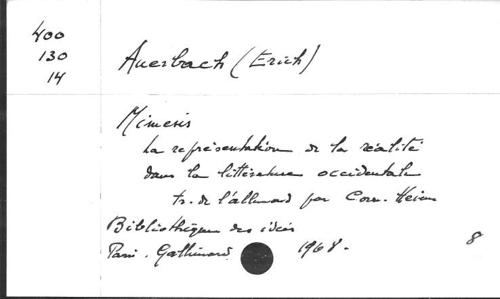 400
130
14
Auerbach (Erich)
Mimesis
La représentation de la réalité
dans la littérature occidentale
tr. de l'allemand par Corn. Heim
Bibliothèque des idées
Paris. Gallimard 1968.
8